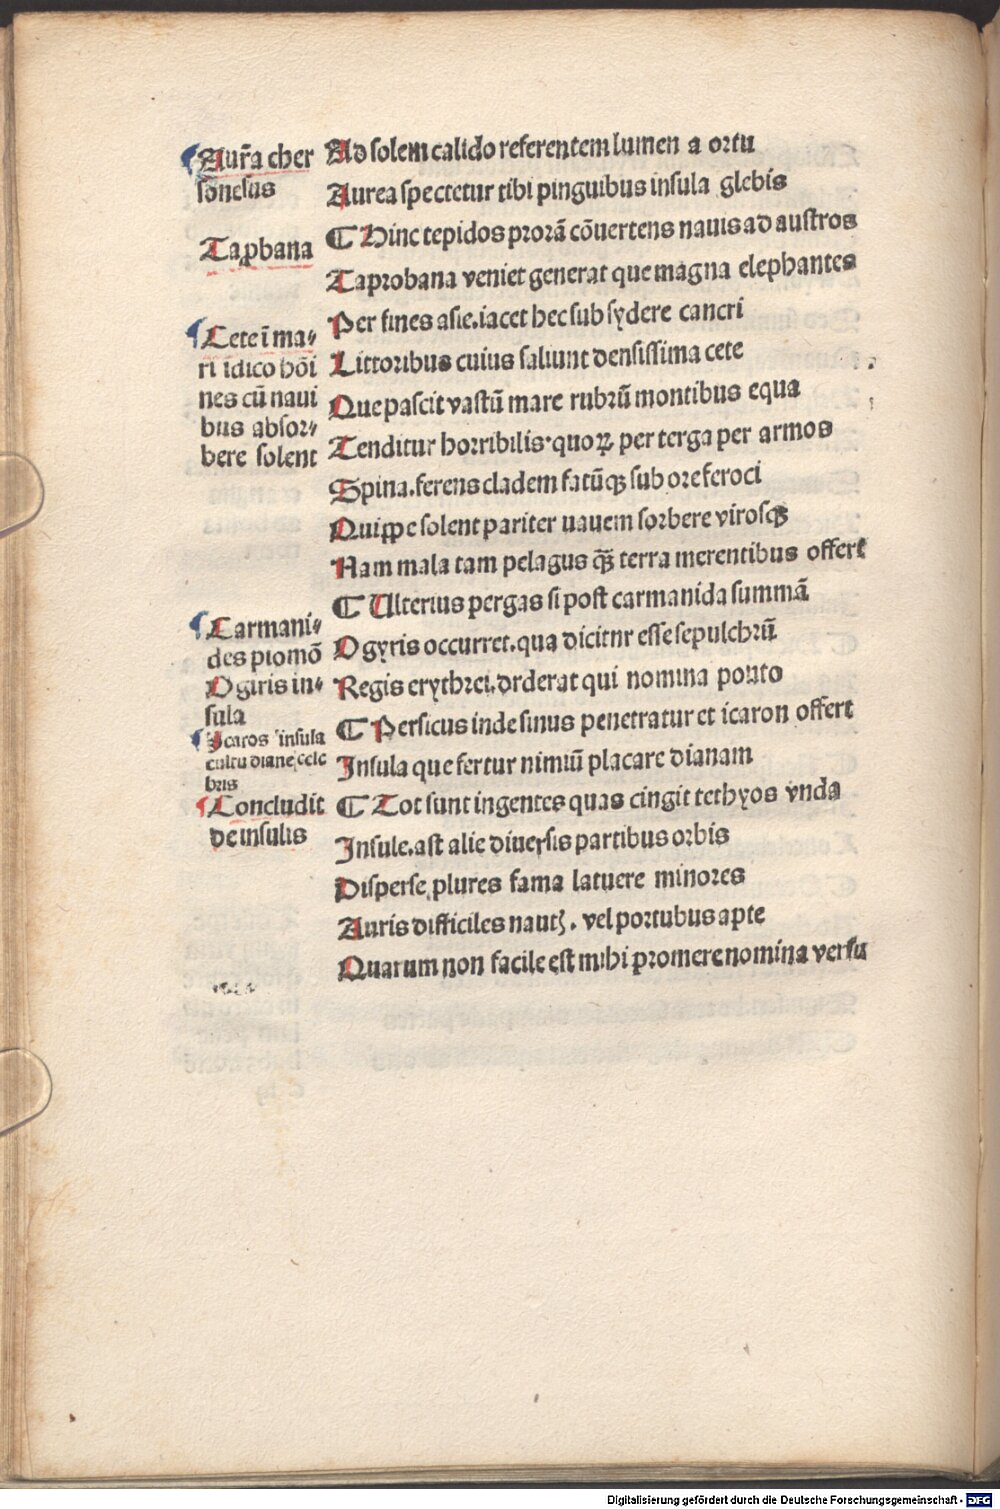 Aur̃a cher
sonesus
Tapbana
Cete ĩ ma⸗
ri ĩdico hõĩ
nes cũ naui
bus absor⸗
bere solent
Carmani⸗
des ꝓiomõ
Ogiris in⸗
sula
Icaros insula
cultu diane cele
bris
Concludit
de insulis
Ad solem calido referentem lumen a ortu
Aurea spectetur tibi pinguibus insula glebis
¶ Hinc tepidos prorã cõuertens nauis ad austros
Taprobana veniet generat que magna elephantes
Per fines asie. iacet hec sub sydere cancri
Littoribus cuius saliunt densissima cete
Que pascit vastũ mare rubrũ montibus equa
Tenditur horribilis. quoꝝ per terga per armos
Spina. ferens cladem fatũqꝫ sub ore feroci
Quippe solent pariter uauem sorbere virosqꝫ
Nam mala tam pelagus qꝫ̃ terra merentibus offert
¶ Ulterius pergas si post carmanida summã
Ogyris occurret. qua dicitnr esse sepulchrũ
Regis erythrei. drderat qui nomina ponto
¶ Persicus inde sinus penetratur et icaron offert
Insula que fertur nimiũ placare dianam
¶ Tot sunt ingentes quas cingit tethyos vnda
Insule. ast alie diuersis partibus orbis
Disperse. plures fama latuere minores
Auris difficiles nautꝫ. vel portubus apte
Quarum non facile est mihi promere nomina versu
Digitalisierung gefördert durch die Deutsche Forschungsgemeinschaft - DFG